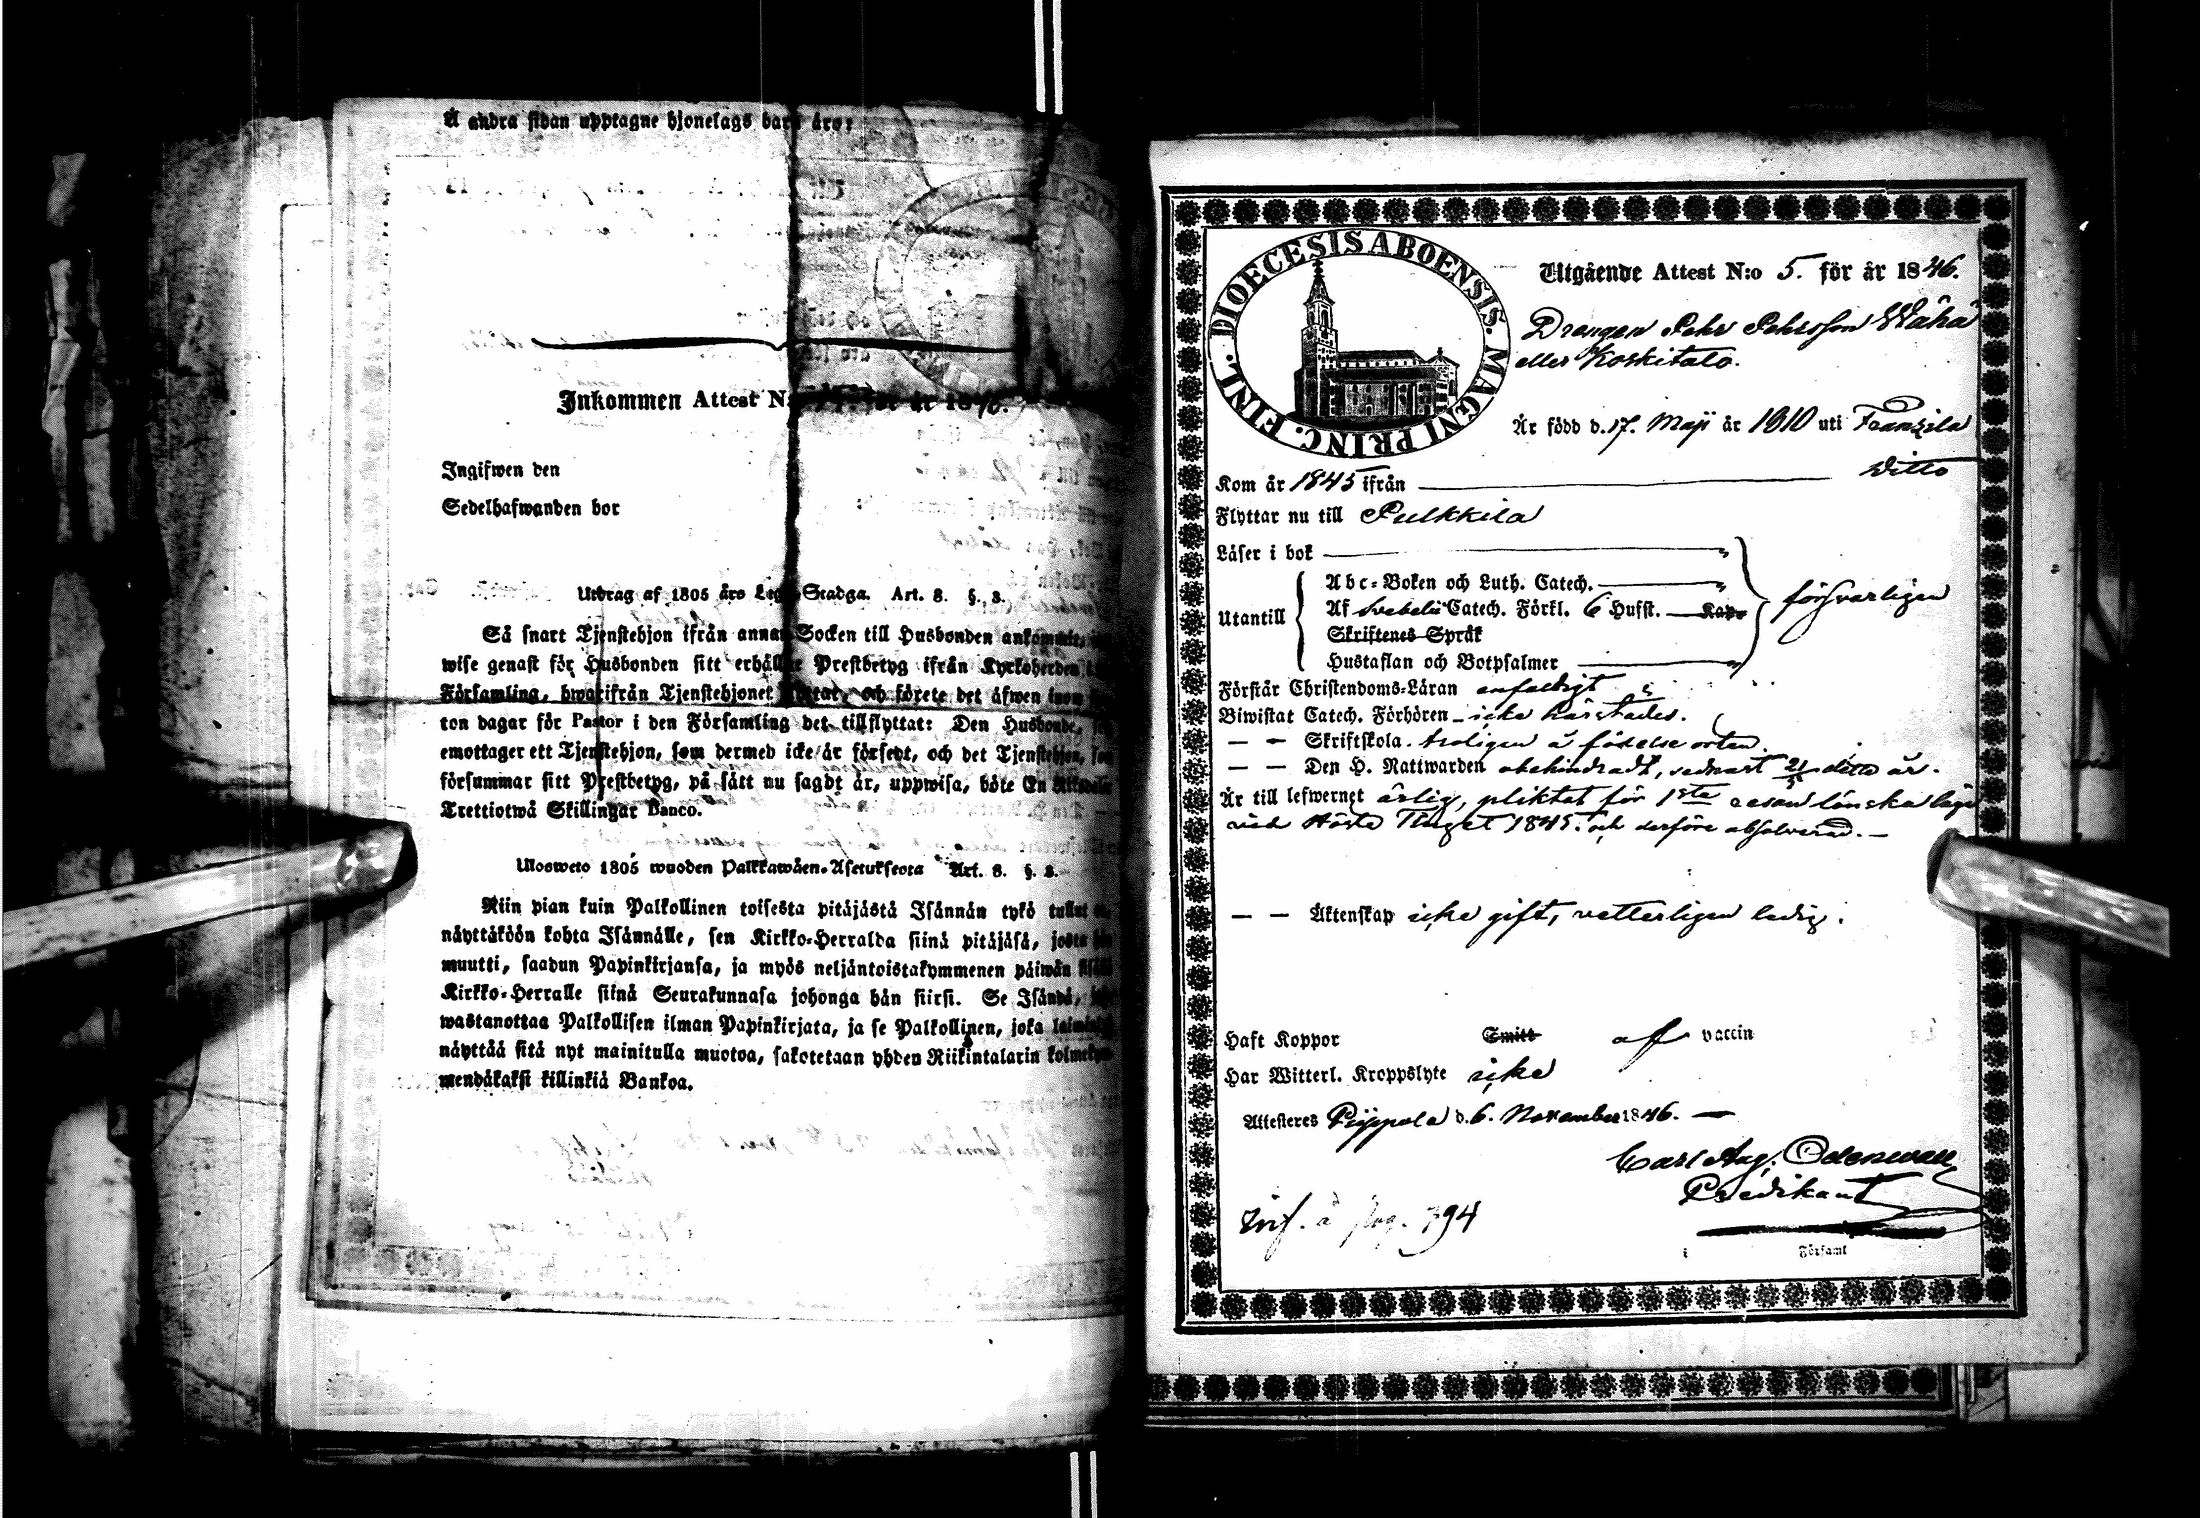 Å andra sidan upptagne hjonelags barn äro:
Inkommen Attest N:o för år 18
Ingifwen den
Sedelhafwanden bor
Utdrag af 1805 års Lego-Stadga. Art. 8. §. 3.
Så snart Tjenstehjon ifrån annan Socken till Husbonden ankommit,
wise genast för Husbonden sitt erhållne Prestbetyg ifrån Kyrkoherden i
Församling, hwarifrån Tjenstehjonet flyttat, och förete det äfwen inom
ton dagar för Pastor i den Församling det tillflyttat: Den Husbonde, som
emottager ett Tjenstehjon, som dermed icke är försedt, och det Tjenstehjon, som
försummar sitt Prestbetyg, på sätt nu sagdt är, uppwisa, böte En Riksdaler
Trettiotwå Skillingar Banco.
Ulosweto 1805 wuoden Palkkawäen-Asetuksesta Art. 8. §. 3.
Niin pian kuin Palkollinen toisesta pitäjästä Isännän tykö tullut
näyttäköön kohta Isännälle, sen Kirkko-Herralda siinä pitäjäsä, josta hän
muutti, saadun Papinkirjansa, ja myös neljäntoistakymmenen päiwän sisällä
Kirkko-Herralle siinä Seurakunnasa johonga hän siirsi. Se Isändä, joka
wastanottaa Palkollisen ilman Papinkirjata, ja se Palkollinen, joka
näyttää sitä nyt mainitulla muotoa, sakotetaan yhden Riikintalarin kolmekym-
mendäkaksi killinkiä Bankoa.
DIOECESIS ABOENSIS. MAGNI PRINC. FINL.
Utgående Attest N:o 5. för år 1846.
Drengen Pehr Pehrsson Wähä
eller Koskitalo.
Är född d. 17. Maji år 1810 uti Franzila
Kom år 1845 ifrån ditto
Flyttar nu till Pulkkila
Läser i bok
Utantill
Abc-Boken och Luth. Catech.
Af Svebelii Catech. Förkl. 6 Hufst. Kap.
Skriftenes Språk
Hustaflan och Botpsalmer
försvarligen
Förstår Christendoms-Läran enfaldigt
Biwistat Catech. Förhören icke härstädes.
— — Skriftskola. troligen å födelse orten.
— — Den H. Nattwarden obehindradt, sednast ditto år.
Är till lefwernet ärlig, pliktat för 1sta resan lönska läge
vid Höste Tinget 1845. och derföre absolverad. —
— — Äktenskap icke gift, vetterligen ledig.
Haft Koppor Smitt af vaccin
Har Witterl. Kroppslyte icke
Attesteres Pijppola d. 6. November 1846. —
Carl Aug. Odenwall
Predikant
i Församl
Inf. å pag. 394